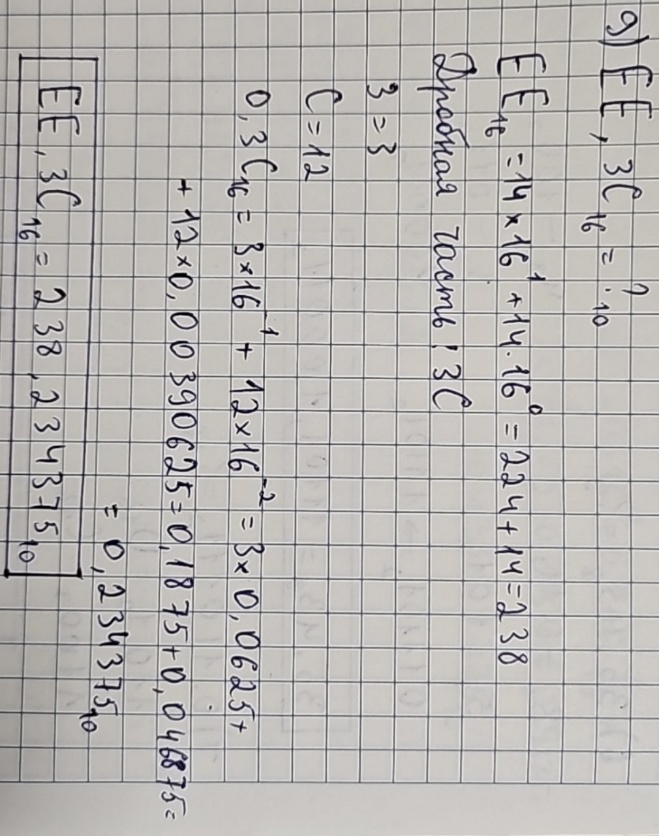 д) EE,3C₁₆ = ?₁₀
EE₁₆ = 14×16¹ + 14·16⁰ = 224 + 14 = 238
Дробная часть: 3C
3 = 3
C = 12
0,3C₁₆ = 3×16⁻¹ + 12×16⁻² = 3×0,0625 +
+ 12×0,00390625 = 0,1875 + 0,046875 =
= 0,234375₁₀
EE,3C₁₆ = 238,234375₁₀